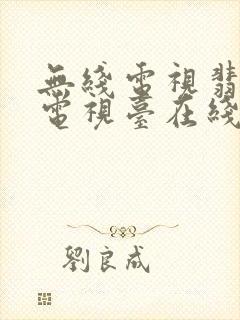 無綫電視翡
電視臺在綫
劉良成